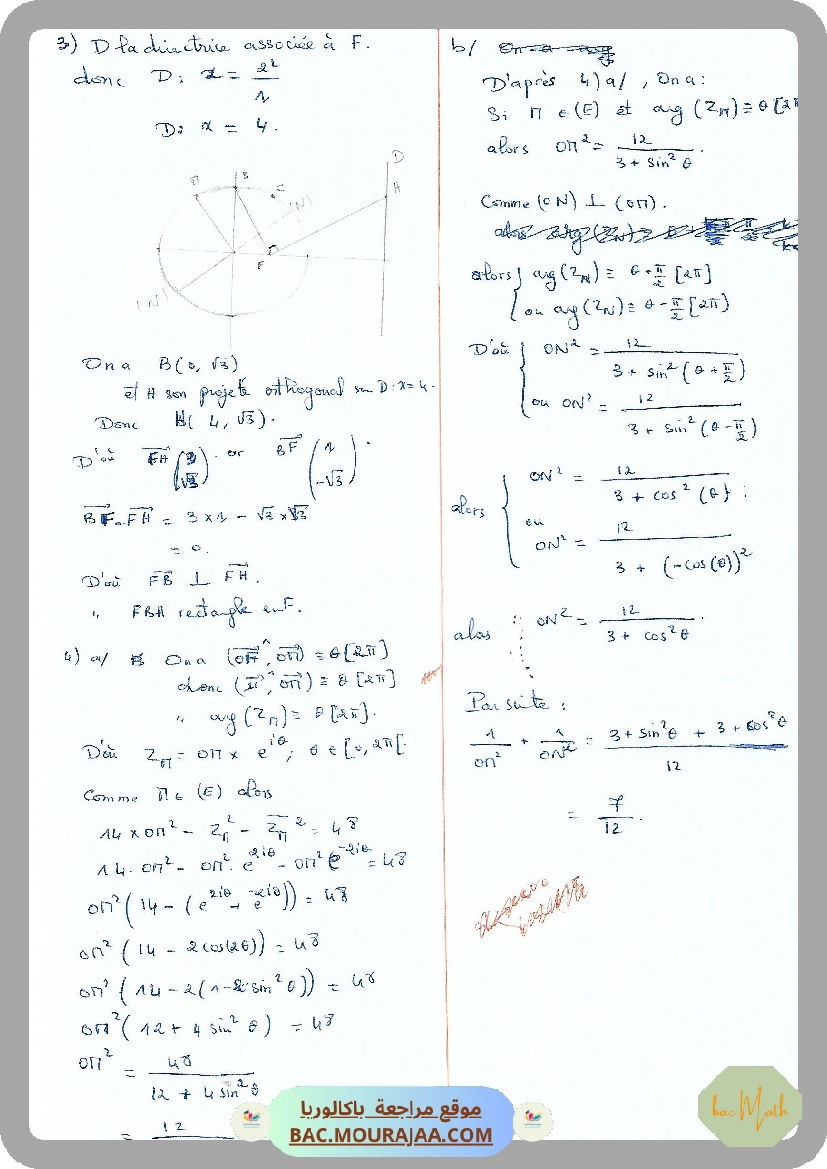 3) D la directrice associée à F.
donc D: x = 2²/1
D: x = 4.
D
M
B
C
(N)
H
F
(N)
On a B(0, √3)
et H son projeté orthogonal sur D: x=4.
Donc H(4, √3).
D'où FH (3 √3) or BF (1 -√3).
BF.FH = 3×1 - √3×√3
= 0.
D'où FB ⊥ FH.
" FBH rectangle en F.
4) a/ On a (OF^, OM) ≡ θ[2π]
donc (i^, OM) ≡ θ [2π]
" arg(Z_M) ≡ θ [2π].
D'où Z_M = OM × e^{iθ}; θ ∈ [0, 2π[.
Comme M ∈ (E) alors
14×OM² - Z_M² - Z̄_M² = 48
14.OM² - OM².e^{2iθ} - OM² e^{-2iθ} = 48
OM²(14 - (e^{2iθ} + e^{-2iθ})) = 48
OM²(14 - 2cos(2θ)) = 48
OM²(14 - 2(1-2sin²θ)) = 48
OM²(12 + 4 sin²θ) = 48
OM² = 48/(12 + 4 sin²θ)
= 12
b/
D'après 4)a/, On a:
Si M ∈ (E) et arg(Z_M) ≡ θ [2π
alors OM² = 12/(3 + sin²θ).
Comme (ON) ⊥ (OM).
alors { arg(Z_N) ≡ θ + π/2 [2π]
ou arg(Z_N) ≡ θ - π/2 [2π]
D'où { ON² = 12/(3 + sin²(θ + π/2))
ou ON² = 12/(3 + sin²(θ - π/2))
alors { ON² = 12/(3 + cos²(θ))
ou
ON² = 12/(3 + (-cos(θ))²)
alors ON² = 12/(3 + cos²θ).
Par suite :
1/OM² + 1/ON² = (3 + sin²θ + 3 + cos²θ)/12
= 7/12.
موقع مراجعة باكالوريا
BAC.MOURAJAA.COM
bac Math